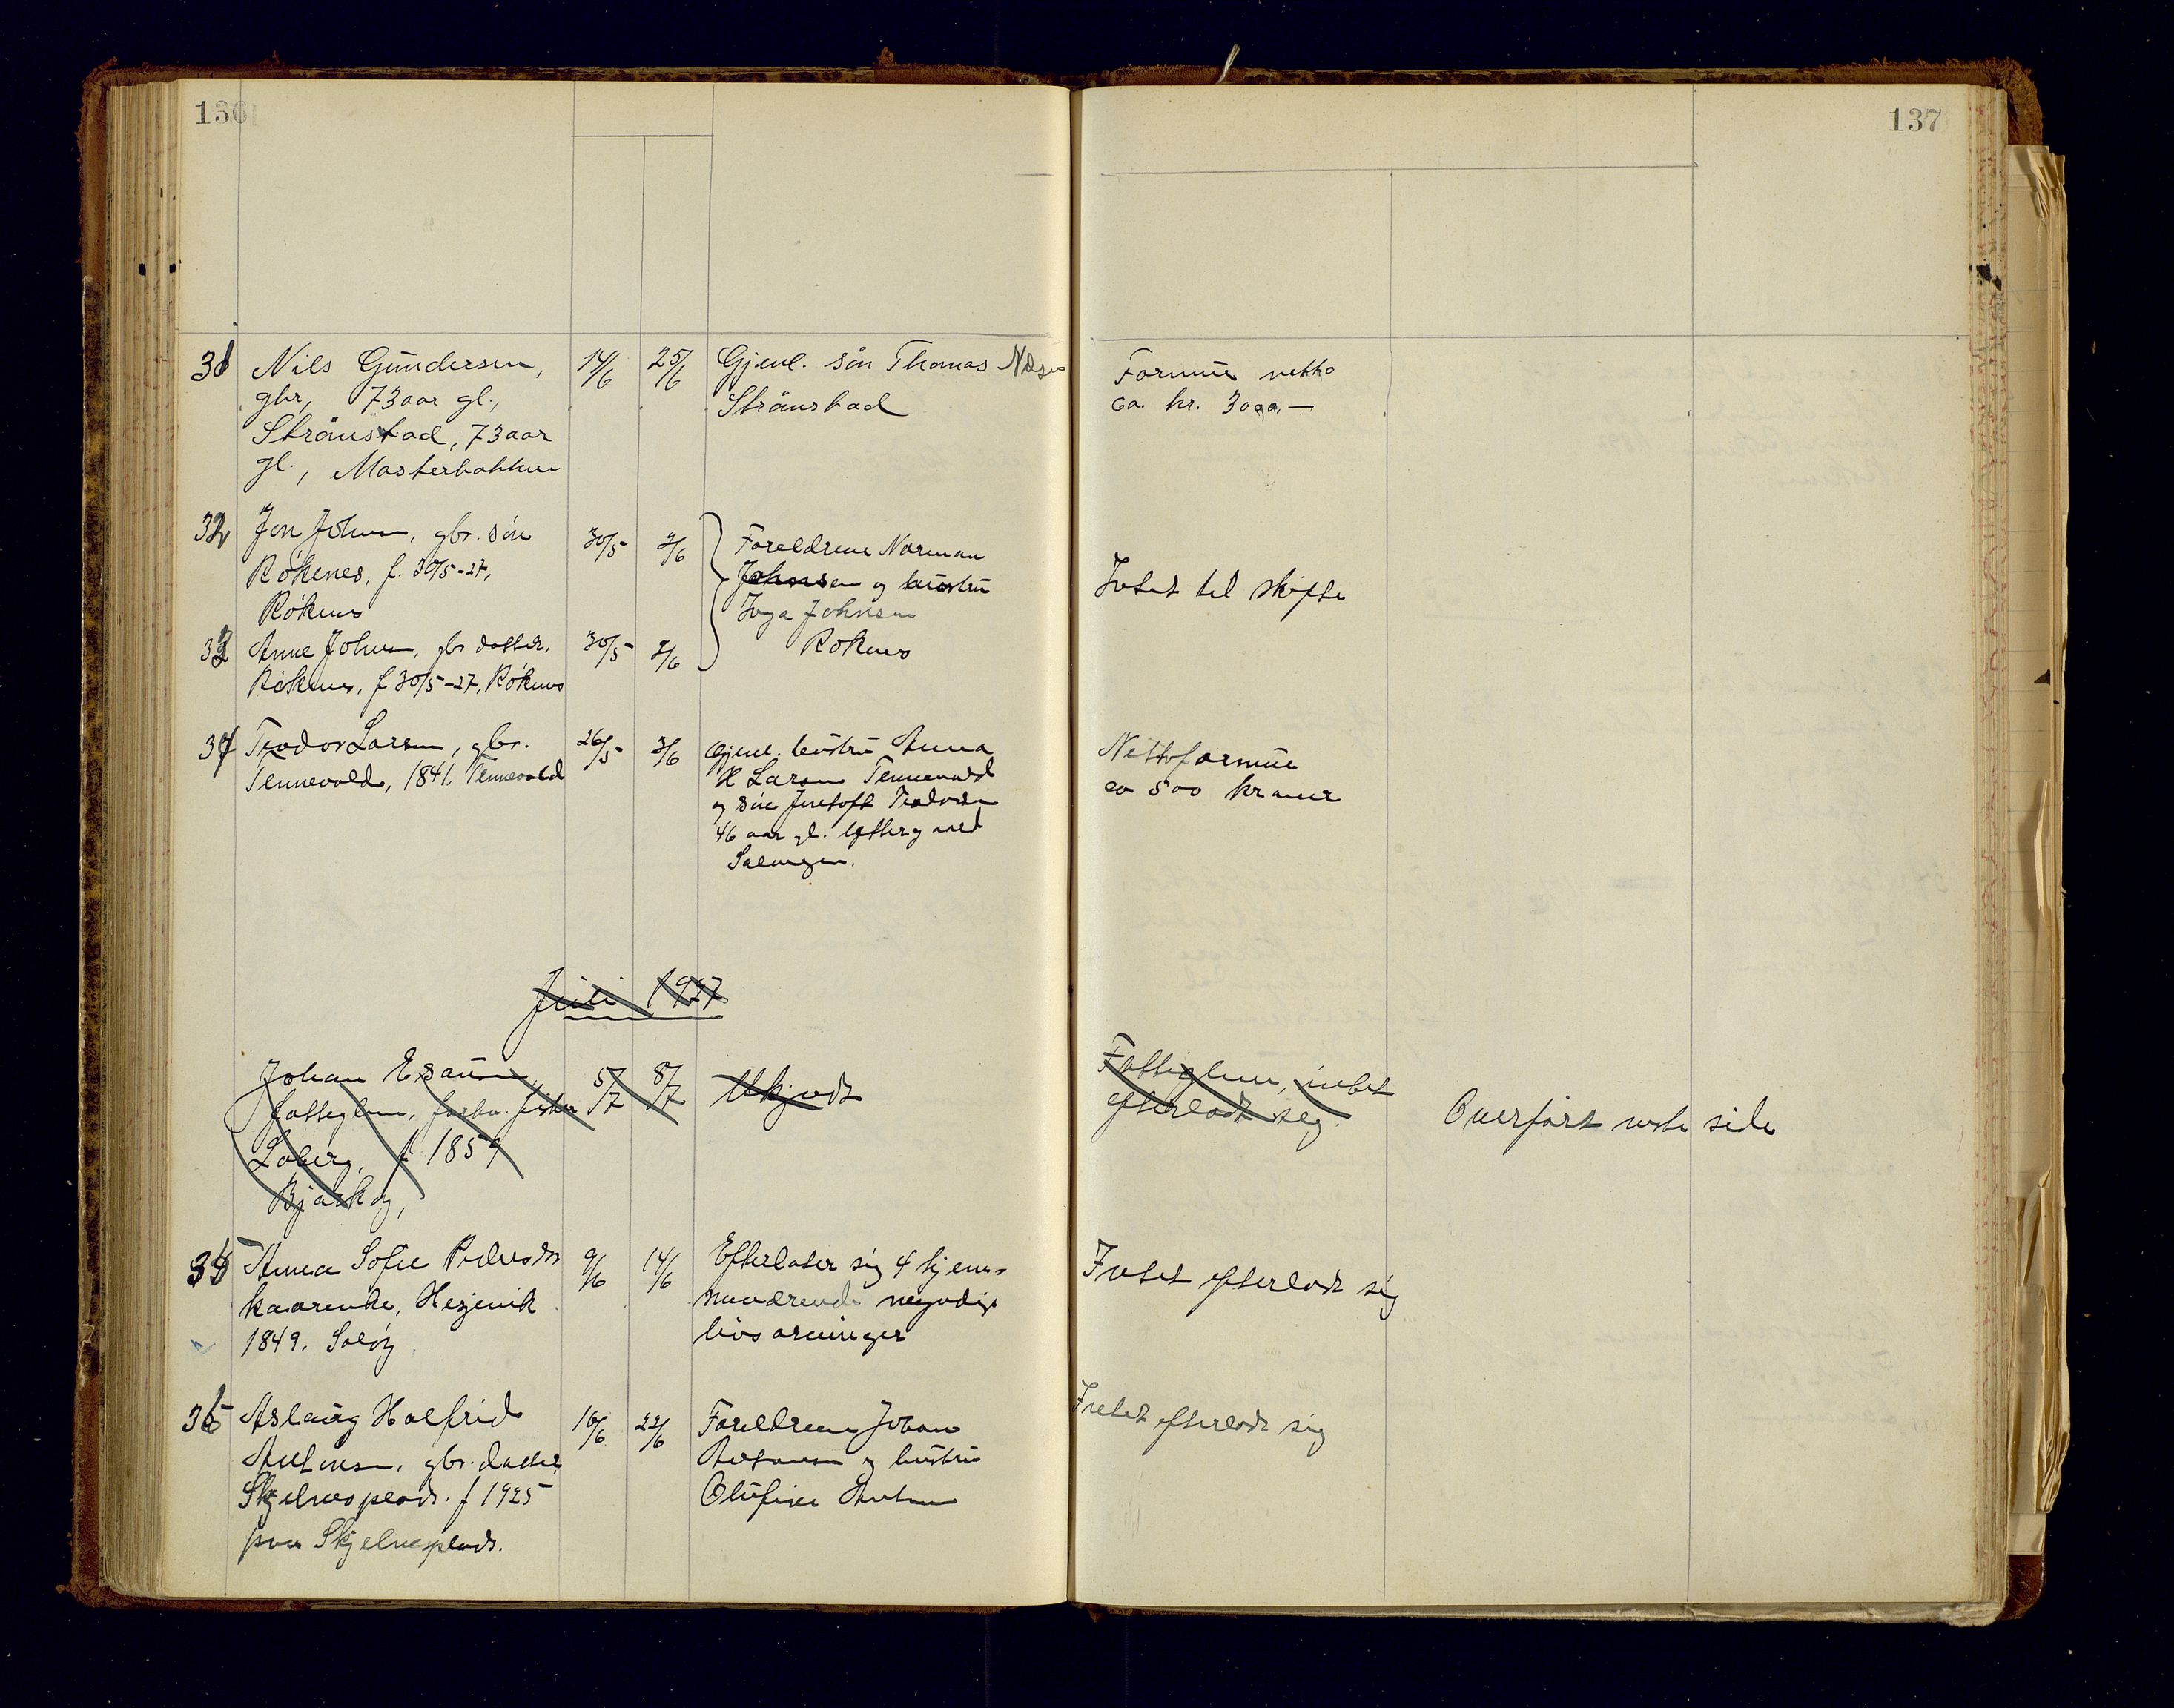 136
137
31 Nils Gundersen, 14/6 25/6 Gjenl. søn Thomas
gbr, 73 aar gl., Strånstad
Strånstad, 73 aar
gl., Masterbakken
Formue netto
ca. kr. 3000.—
32 Jon Johnsen, gbr. søn 30/5 2/6 Foreldrene Norman
Røkenes, f. 30/5-27, Johnsen og hustru
Røkenes Inga Johnsen
Røkenes
Intet til skifte
33 Anne Johnsen, gbr datter, 30/5 2/6
Røkenes, f 30/5-27, Røkenes
34 Teodor Larsen, gbr. 26/5 3/6 Gjenl. hustru Anna
Tennevold, 1841. Tennevold K Larsen Tennevold
og søn Teodorsen
46 aar gl.
Salangen.
Nettoformue
ca 500 kroner
Juli 1927
Johan Esausen 5/7 8/7 Ukjendt
fattiglem, forhv. fisker
Loberg, f 1859
Bjarkøy,
Fattiglem, intet
efterlodt seg.
Overført neste side
35 Anna Sofie Pedersdtr 9/6 14/6 Efterlater sig 4 hjem-
kaarenke, Hesjevik meværende myndige
1849. Rolløy livsarvinger
Intet efterlodt sig
36 Aslaug Halfrid 16/6 22/6 Foreldrene Johan
Antonsen, gbr. datter Antonsen og hustru
Skjelnesplads. f 1925 Olufine Antonsen
paa Skjelnesplads.
Intet efterlodt sig